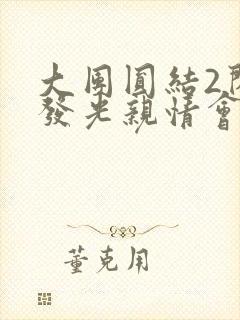 大團圓結2
發光親情會
董克用